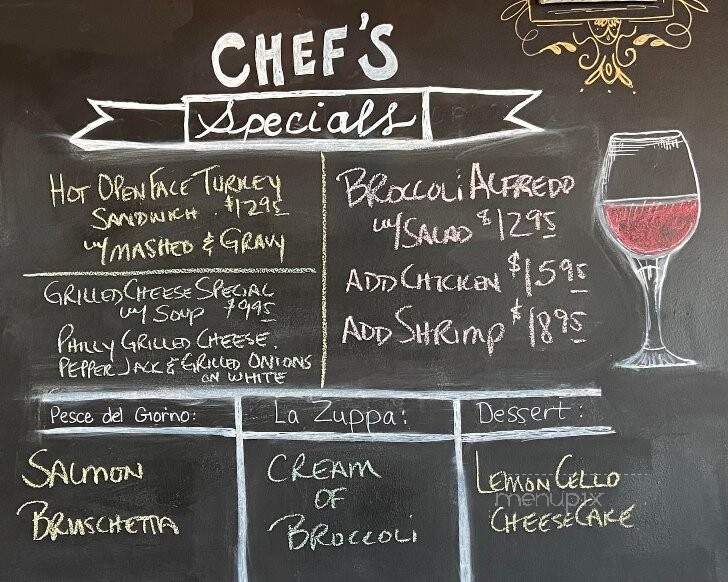 CHEF'S
Specials
HOT OPEN FACE TURKEY
SANDWICH $12.95
W/ MASHED & GRAVY
GRILLED CHEESE SPECIAL
W/ SOUP $9.95
PHILLY GRILLED CHEESE.
PEPPER JACK & GRILLED ONIONS
ON WHITE
BROCCOLI ALFREDO
W/ SALAD $12.95
ADD CHICKEN $15.95
ADD SHRIMP $18.95
Pesce del Giorno:
SALMON
BRUSCHETTA
La Zuppa:
CREAM
OF
BROCCOLI
Dessert:
LEMON CELLO
CHEESECAKE
menupix